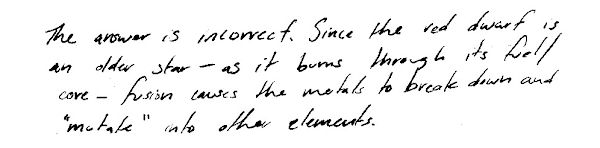 The answer is incorrect. Since the red dwarf is
an older star – as it burns through its fuel/
core – fusion causes the metals to break down and
"mutate" into other elements.